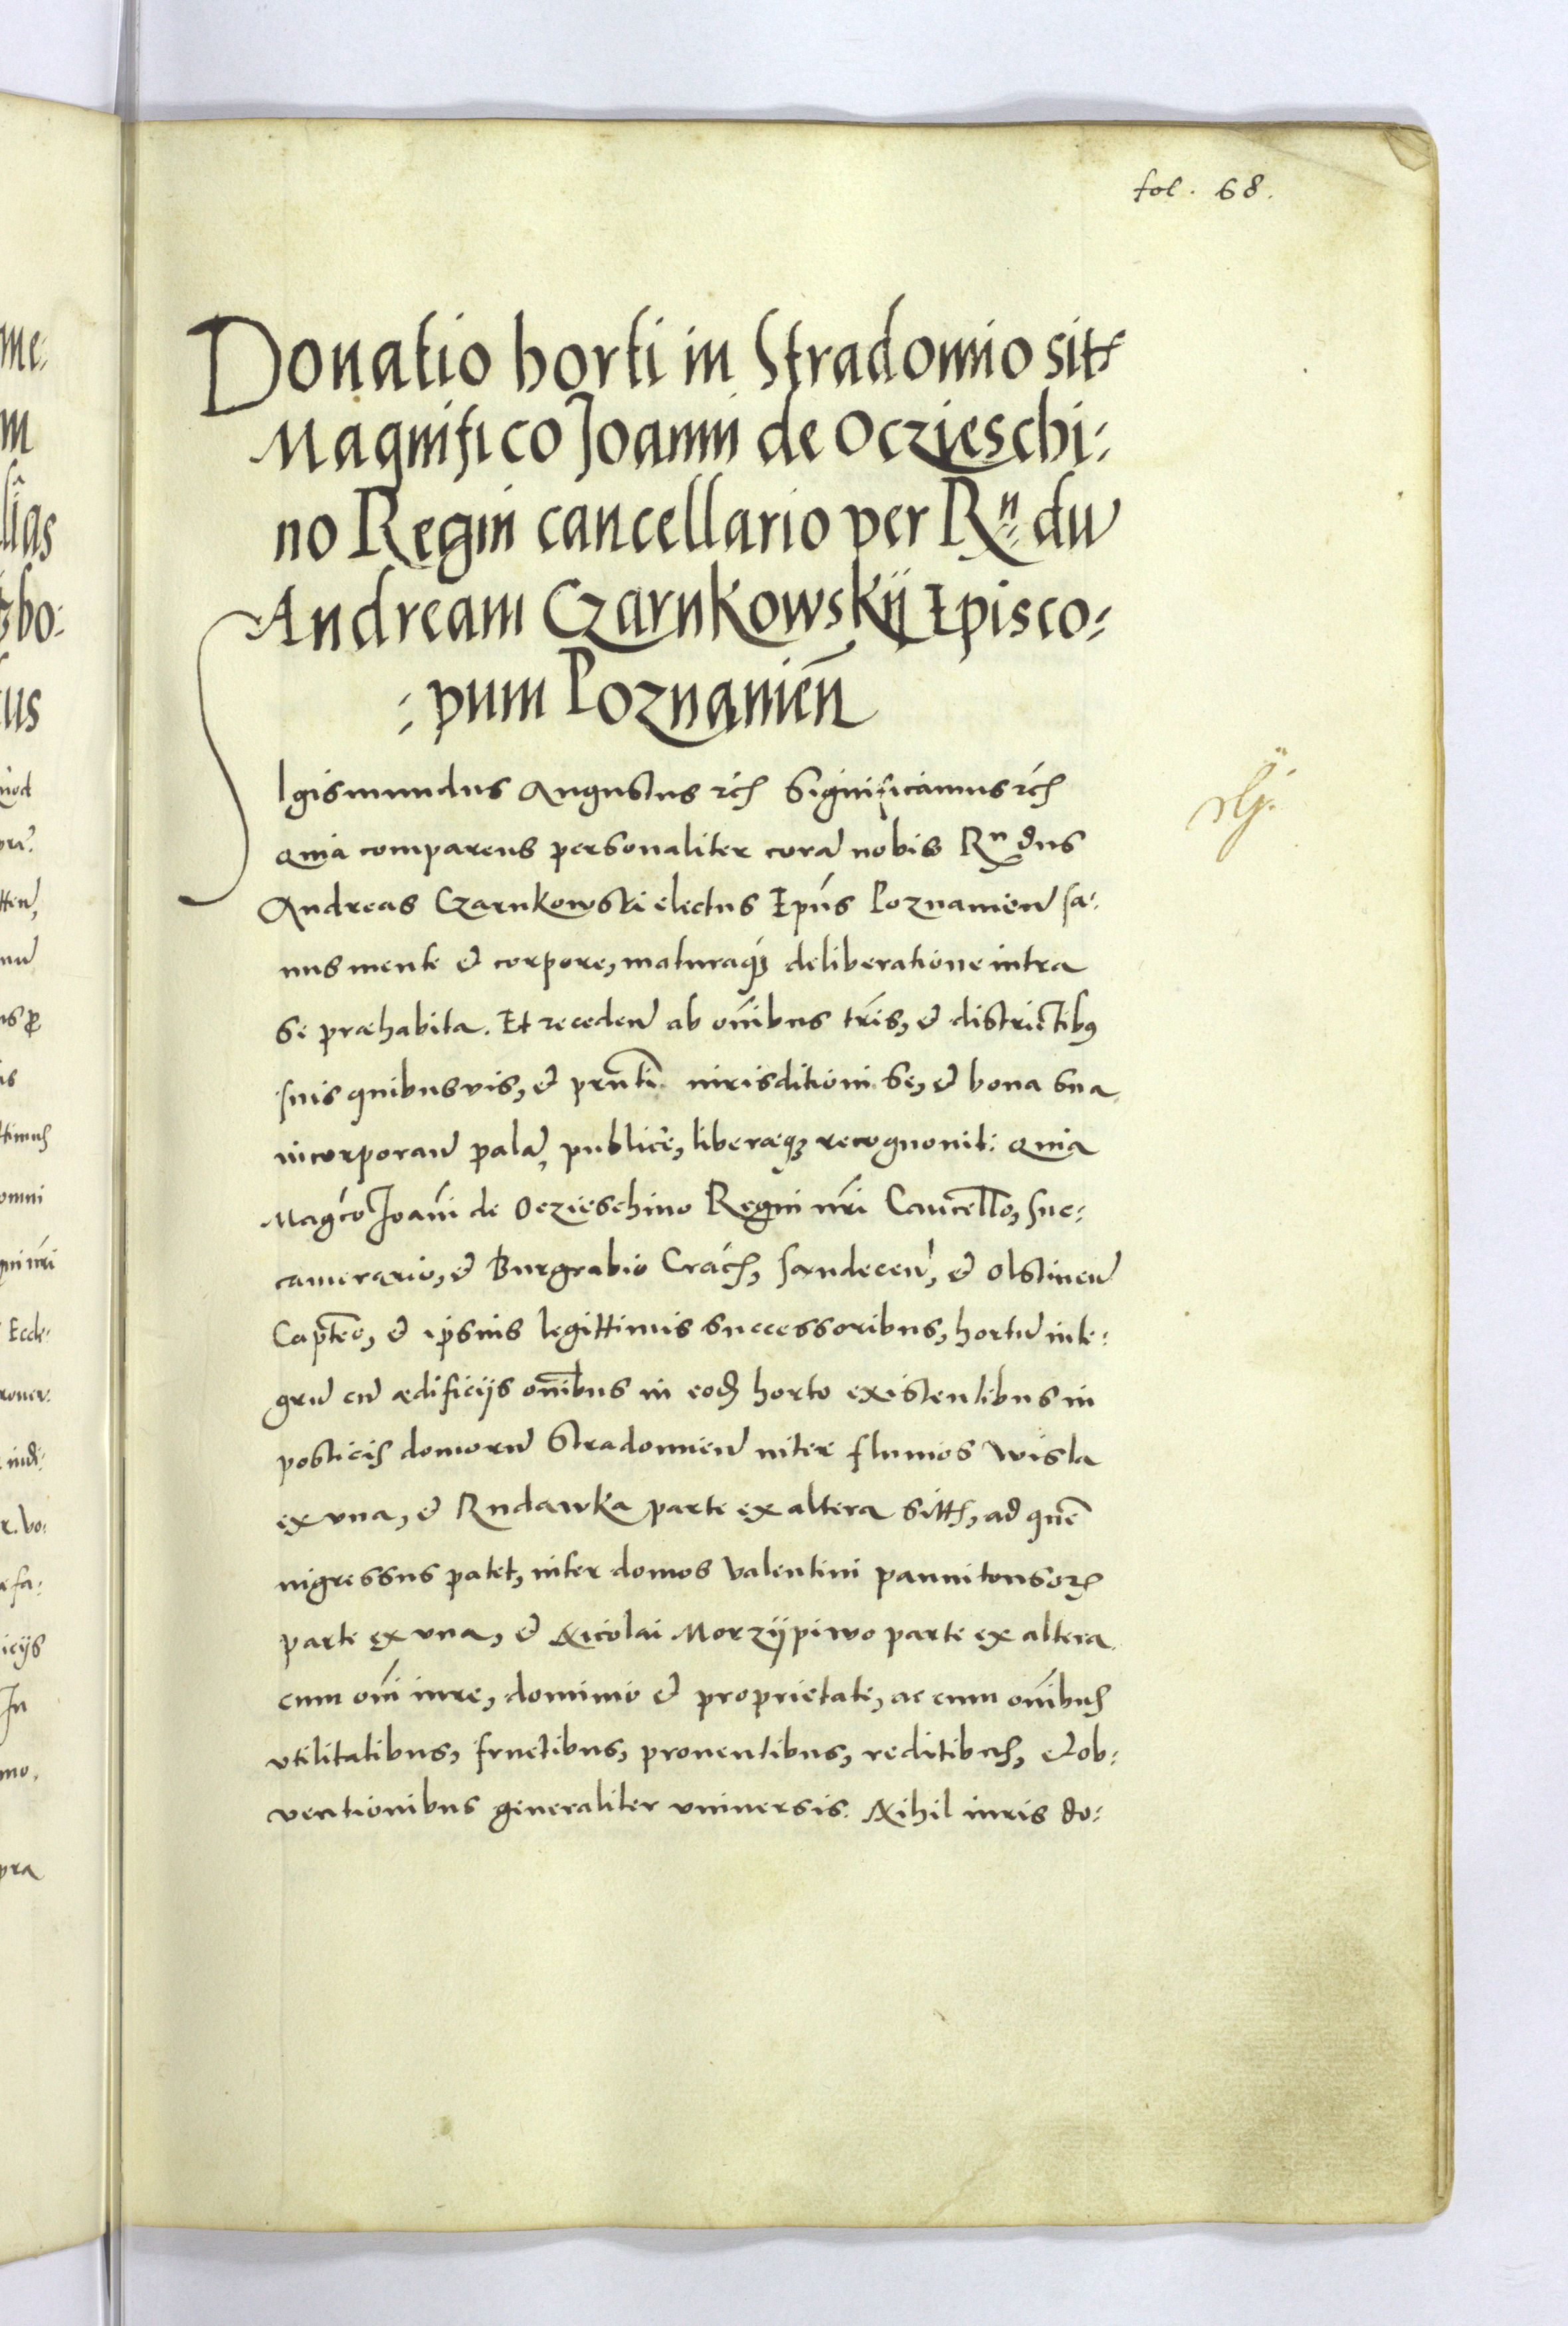 fol. 68.
Donatio horti in Stradomio sit
Magnifico Joanni de Oczieschi:
no Regni cancellario per Rn. dn
Andream Czarnkowskij Episco:
:pum Poznanien
SIgismundus Augustus rc̃ Significamus rc̃
quia comparens personaliter corã nobis Rn dns
Andreas Czarnkowski electus Epũs Poznanien̄ sa:
nus mente & corpore, maturaq̃ deliberatione intra
se præhabita. Et receden̄ ab om̃ibus tr̃is, & districtibq
suis quibusvis, & pr̃nti iurisditioni se, & bona sua
incorporan̄ palã, publice, liberæq̃ recognouit: quia
Mag̃co Joañi de Oczieschino Regni nr̃i Cancell̃o, suc:
camerario, & Burgrabio Crac̃, Sandecen̄, & Olstinen̄
Capt̃eo, & ip̃suis legittimis successoribus, hortũ inte:
grũ cũ ædificijs om̃ibus in eod̃ horto existentibus in
posticis domorũ Stradomien̄ inter fluuios Wisla
ex vna, & Rudawka parte ex altera sitt, ad quẽ
ingressus patet, inter domos Valentini pannitonsor̃
parte ex vna, & Nicolai Morzijpiwo parte ex altera
cum om̃i iure, dominio & proprietate, ac cum om̃ibus
vtilitatibus, fructibus, prouentibus, reditibus, & ob:
uentionibus generaliter vniuersis. Nihil iuris do: